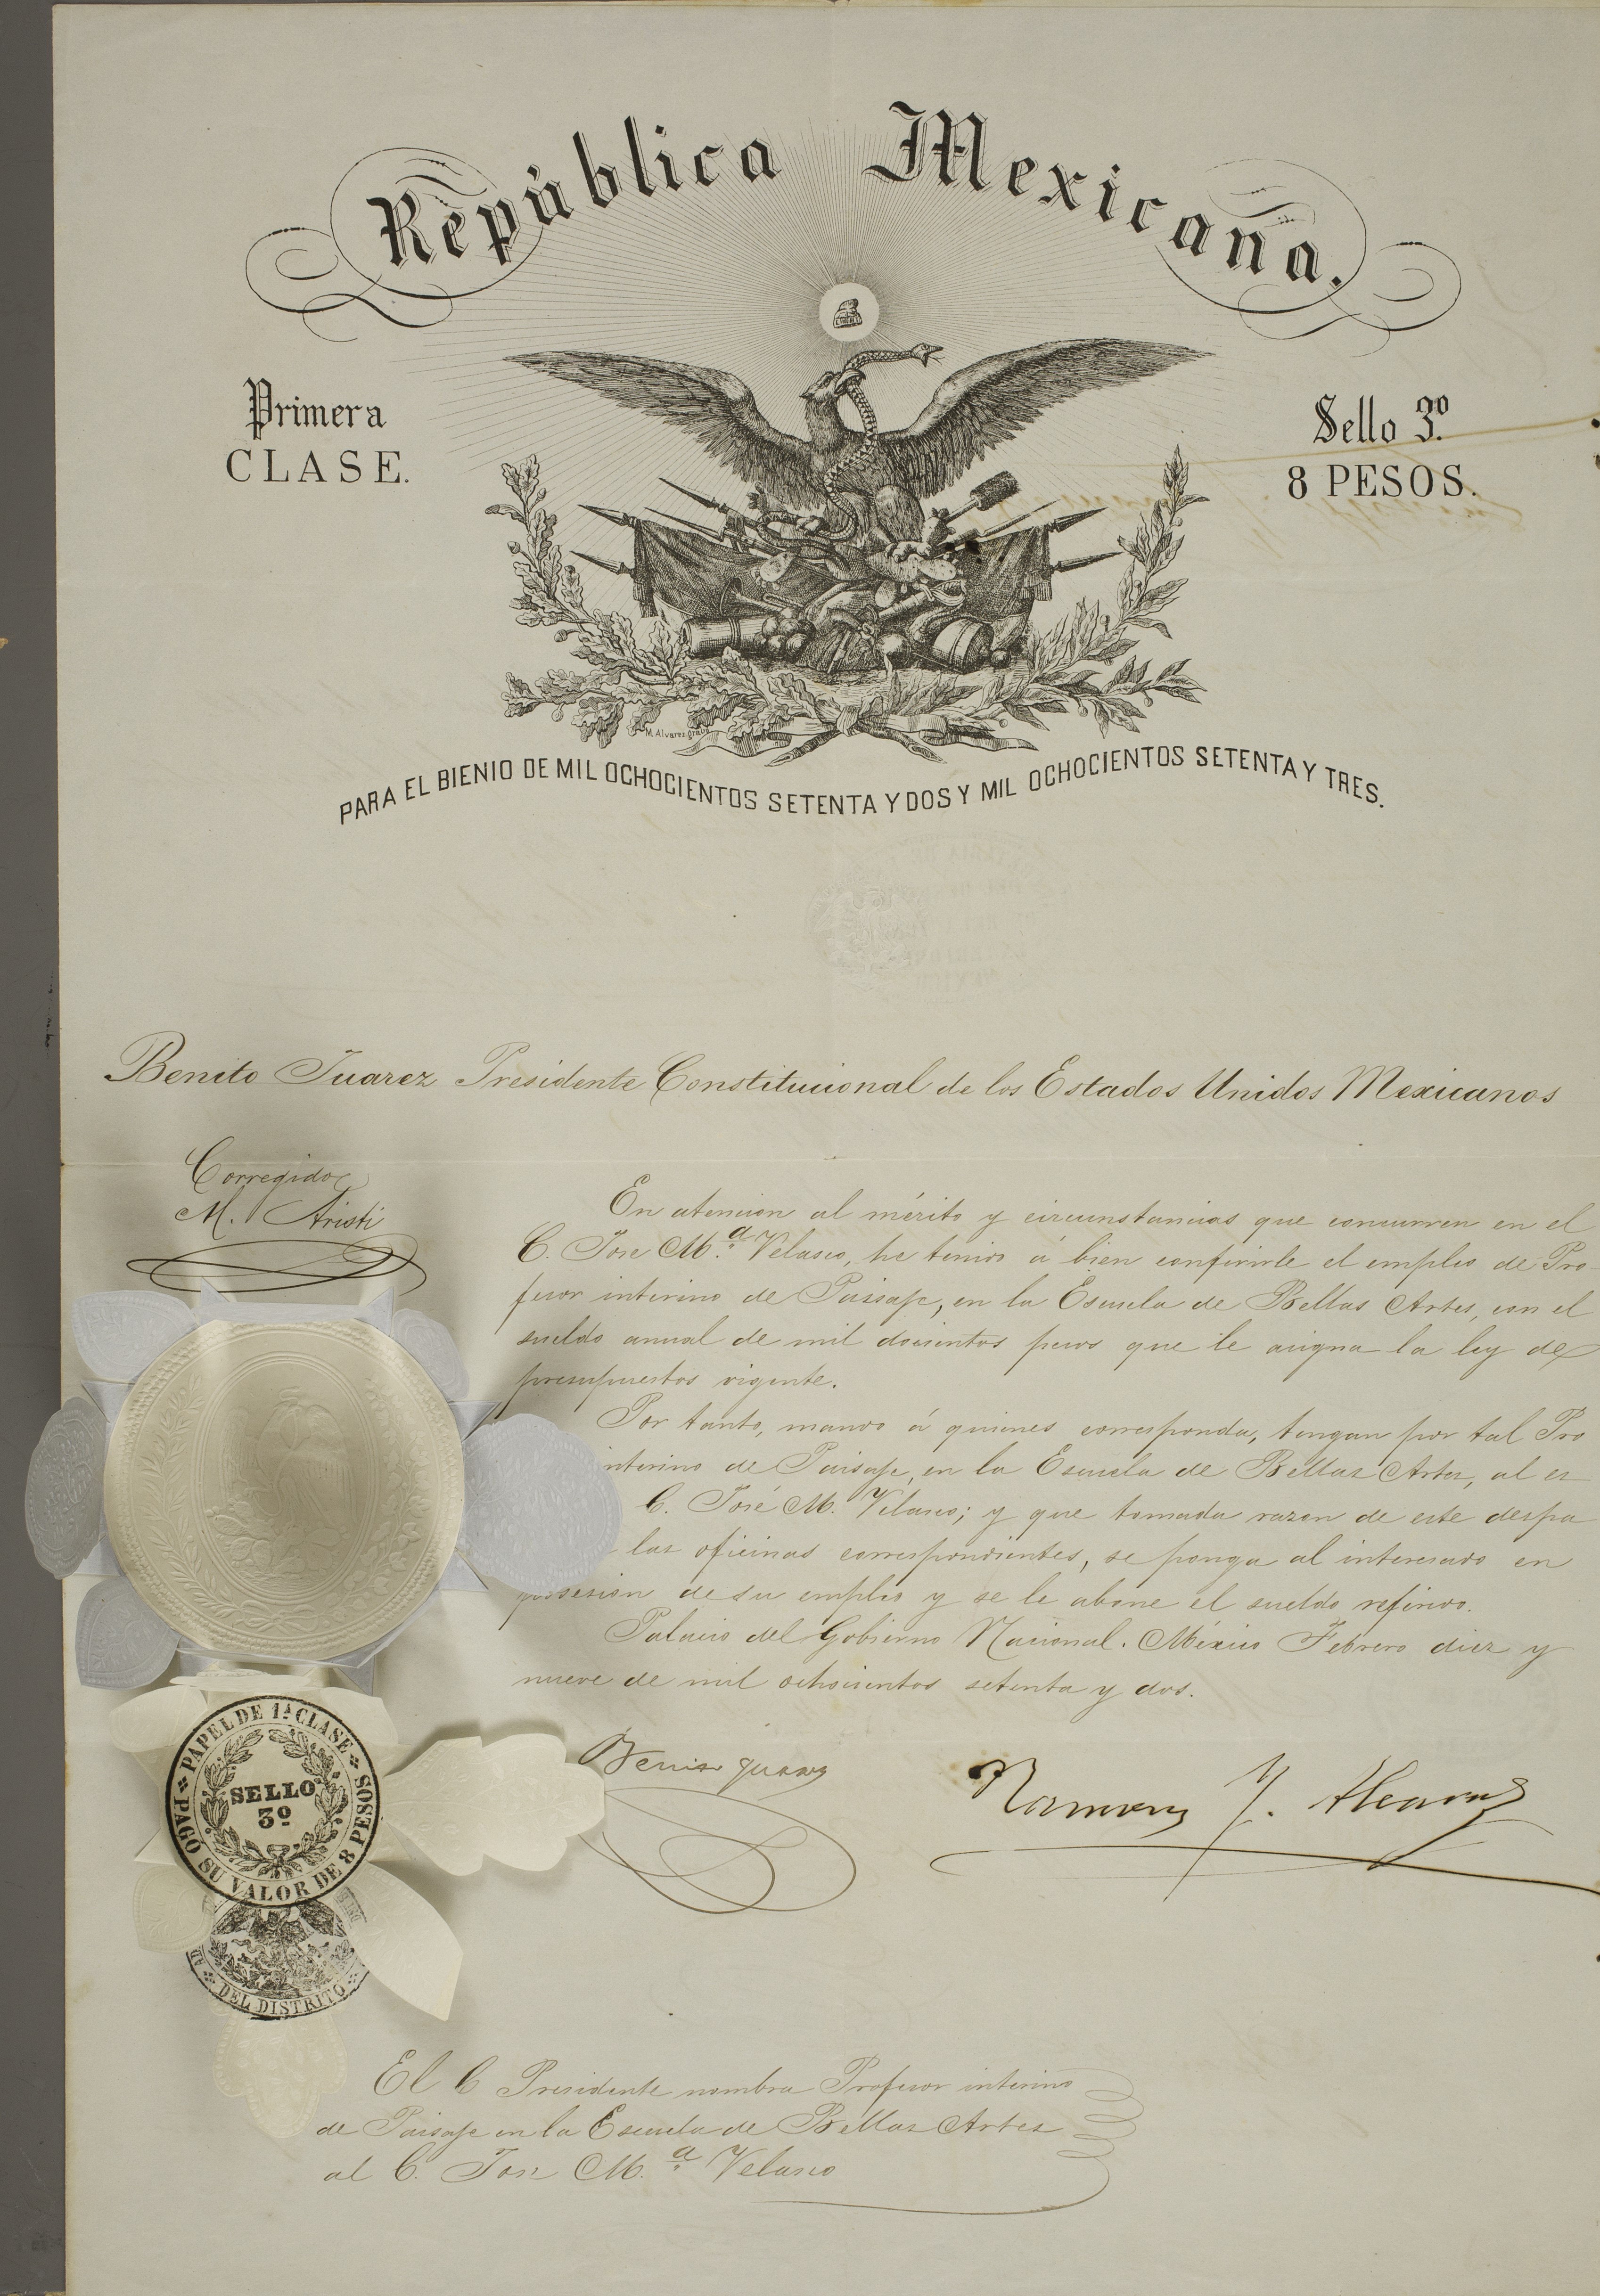 República Mexicana.
Primera
CLASE.
Sello 3º
8 PESOS.
M. Alvarez grabó
PARA EL BIENIO DE MIL OCHOCIENTOS SETENTA Y DOS Y MIL OCHOCIENTOS SETENTA Y TRES.
Benito Juarez Presidente Constitucional de los Estados Unidos Mexicanos
Corregido
M. Aristi
En atencion al mérito y circunstancias que concurren en el
C. Jose M.ª Velasco, he tenido á bien conferirle el empleo de Pro-
fesor interino de Paisaje, en la Escuela de Bellas Artes, con el
sueldo anual de mil docientos pesos que le asigna la ley de
presupuestos vigente.
Por tanto, mando á quienes corresponda, tengan por tal Pro
interino de Paisaje, en la Escuela de Bellas Artes, al es
C. José M. Velasco; y que tomada razon de este despa
las oficinas correspondientes, se ponga al interesado en
posesion de su empleo y se le abone el sueldo referido.
Palacio del Gobierno Nacional. México Febrero diez y
nueve de mil ochocientos setenta y dos.
Benito Juarez
Ramon Y. Alcaraz
PAPEL DE 1ª CLASE
SELLO
3º
PAGÓ SU VALOR DE 8 PESOS
DEL DISTRITO
El C Presidente nombra Profesor interino
de Paisaje en la Escuela de Bellas Artes
al C. Jose M.ª Velasco